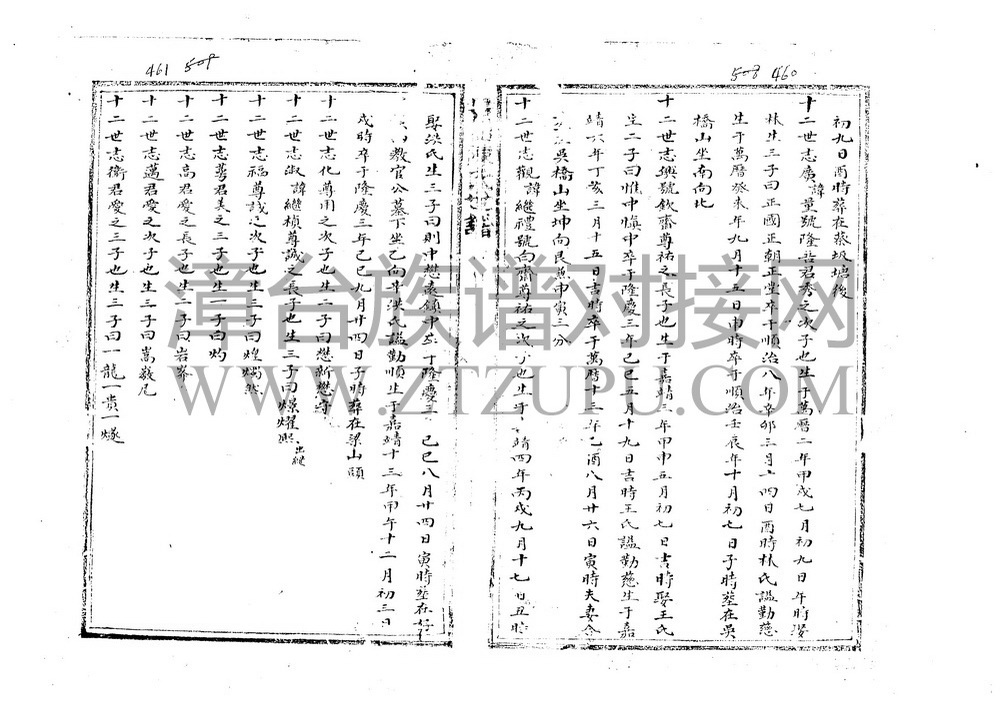 508 460
初九日酉時葬在蔡圾塘後
十二世志廣諱量號隆吾君秀之次子也生于萬曆二年甲戌七月初九日午時娶
林生三子曰正國正朝正堂卒于順治八年辛卯三月十四日酉時林氏謚勤慈
生于萬曆癸未年九月十五日申時卒于順治壬辰年十月初七日子時葬在吳
橋山坐南向北
十二世志興號欽齋尊祐之長子也生于嘉靖三年甲申五月初七日吉時娶王氏
生二子曰惟中慎中卒于隆慶三年己巳五月十九日吉時王氏謚勤慈生于嘉
靖六年丁亥三月十五日吉時卒于萬曆十三年乙酉八月廿六日寅時夫妻合
吳橋山坐坤向艮兼申寅三分
十二世志觀諱繼禮號向齋尊祐之次子也生于嘉靖四年丙戌九月十七日丑時
461 509
娶洪氏生三子曰則中懋衷鎮中卒于隆慶三年己巳八月廿四日寅時葬在
教官公墓下坐乙向辛洪氏謚勤順生于嘉靖十三年甲午十二月初三日
戌時卒于隆慶三年己巳九月廿四日子時葬在梁山頭
十二世志化尊用之次子也生二子曰懋新懋守
十二世志淑諱繼楨尊誠之長子也生三子曰爌燿熙出繼
十二世志福尊誠之次子也生三子曰煌燭然
十二世志蕚君美之三子也生一子曰灼
十二世志高君愛之長子也生二子曰岩峯
十二世志邁君愛之次子也生三子曰嵩敖尼
十二世志衛君愛之三子也生三子曰一龍一貴一燧
漳台族谱对接网
WWW.ZTZUPU.COM